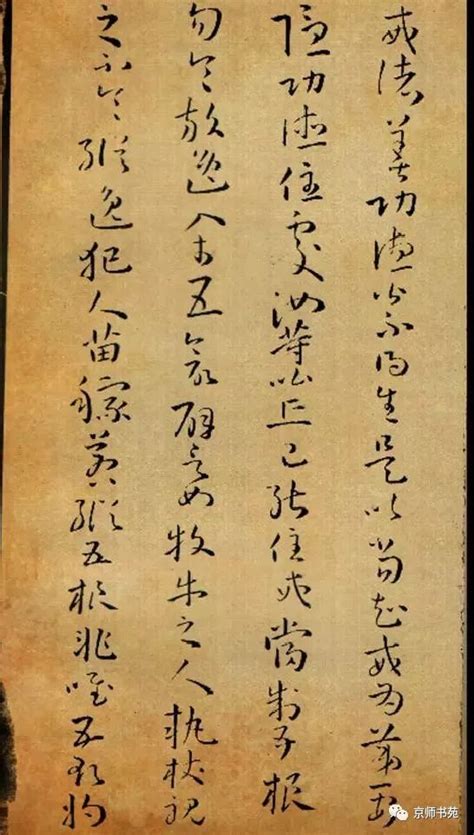 戒諸善功德皆不得生是以當知戒為第一安
隱功德住處汝等比丘已能住戒當制五根
勿令放逸入於五欲譬如牧牛之人執杖視
之不令縱逸犯人苗稼若縱五根非唯五欲將
京师书苑